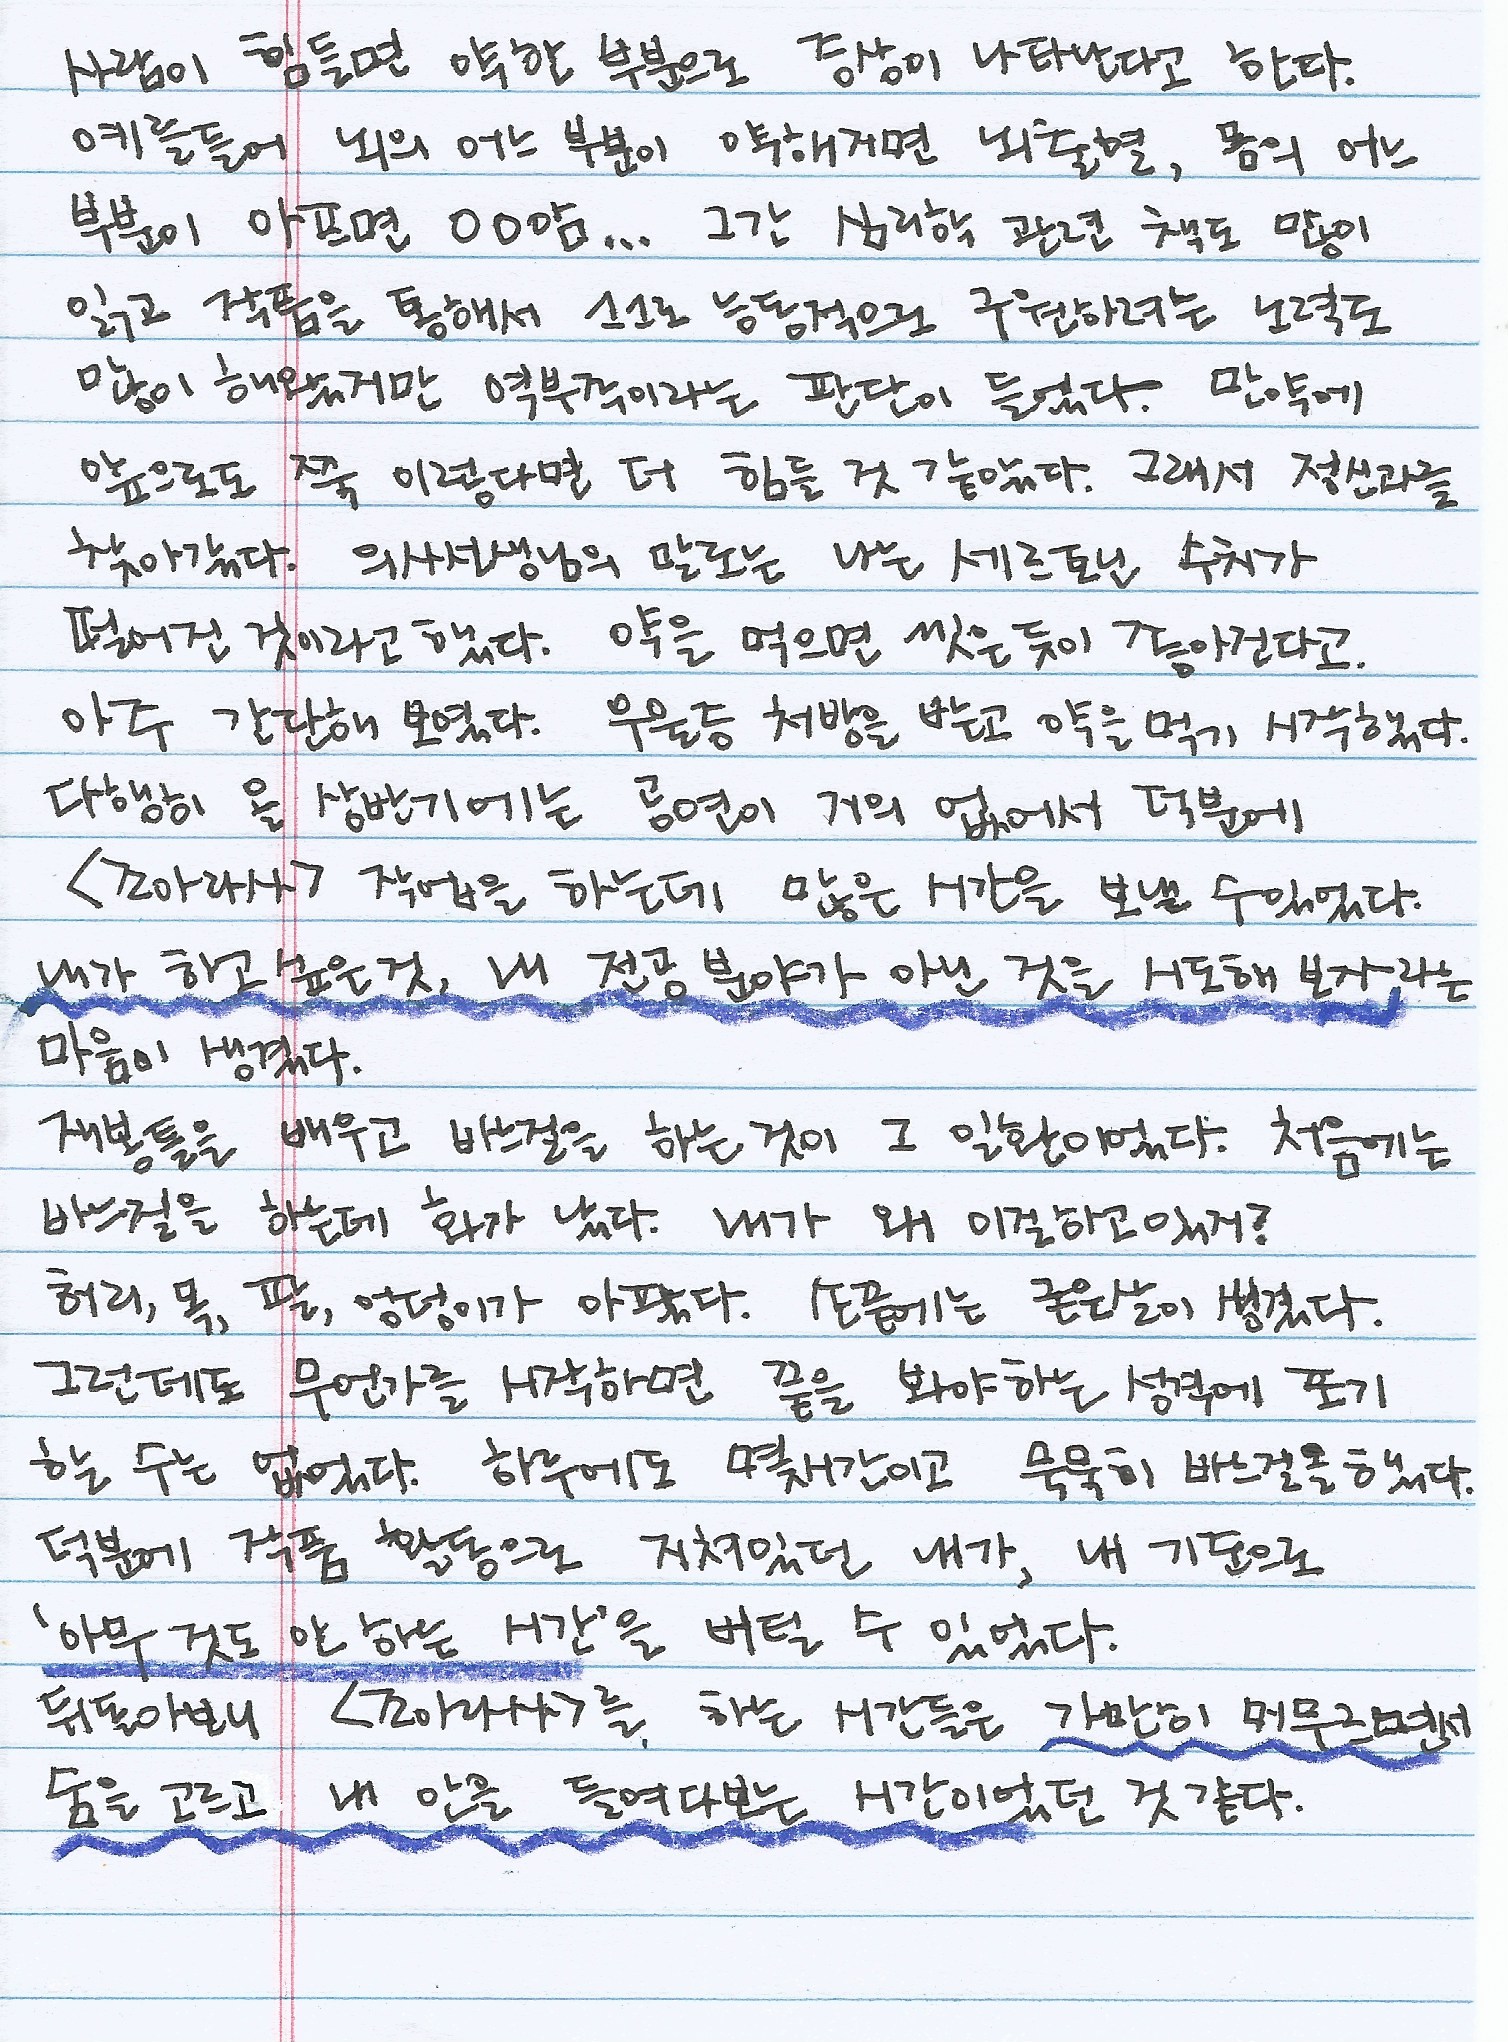 사람이 힘들면 약한 부분으로 증상이 나타난다고 한다.
예를들어 뇌의 어느 부분이 약해지면 뇌출혈, 몸의 어느
부분이 아프면 OO암... 그간 심리학 관련 책도 많이
읽고 작품을 통해서 스스로 능동적으로 구원하려는 노력도
많이 해왔지만 역부족이라는 판단이 들었다. 만약에
앞으로도 쭉 이렇다면 더 힘들 것 같았다. 그래서 정신과를
찾아갔다. 의사선생님의 말로는 나는 세르토닌 수치가
떨어진 것이라고 했다. 약을 먹으면 씻은듯이 좋아진다고.
아주 간단해 보였다. 우울증 처방을 받고 약을 먹기 시작했다.
다행히 올 상반기에는 공연이 거의 없어서 덕분에
<조아라사> 작업을 하는데 많은 시간을 보낼 수있었다.
내가 하고싶은것, 내 전공 분야가 아닌 것을 시도해 보자라는
마음이 생겼다.
재봉틀을 배우고 바느질을 하는것이 그 일환이었다. 처음에는
바느질을 하는데 화가 났다. 내가 왜 이걸하고있지?
허리, 목, 팔, 엉덩이가 아팠다. 손끝에는 굳은살이 생겼다.
그런데도 무언가를 시작하면 끝을 봐야하는 성격에 포기
할 수는 없었다. 하루에도 몇시간이고 묵묵히 바느질을했다.
덕분에 작품 활동으로 지쳐있던 내가, 내 기준으로
'아무 것도 안 하는 시간'을 버틸 수 있었다.
뒤돌아보니 <조아라사>를, 하는 시간들은 가만히 머무르면서
숨을 고르고, 내 안을 들여다보는 시간이었던 것 같다.